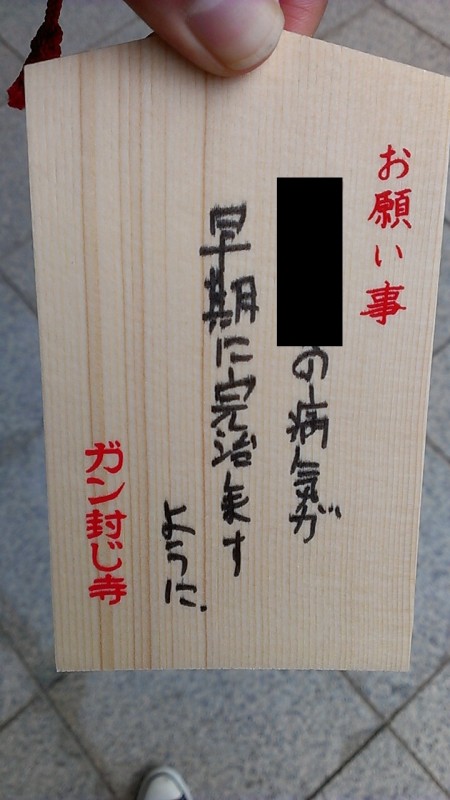 お願い事
の病気が
早期に完治す
ように.
ガン封じ寺